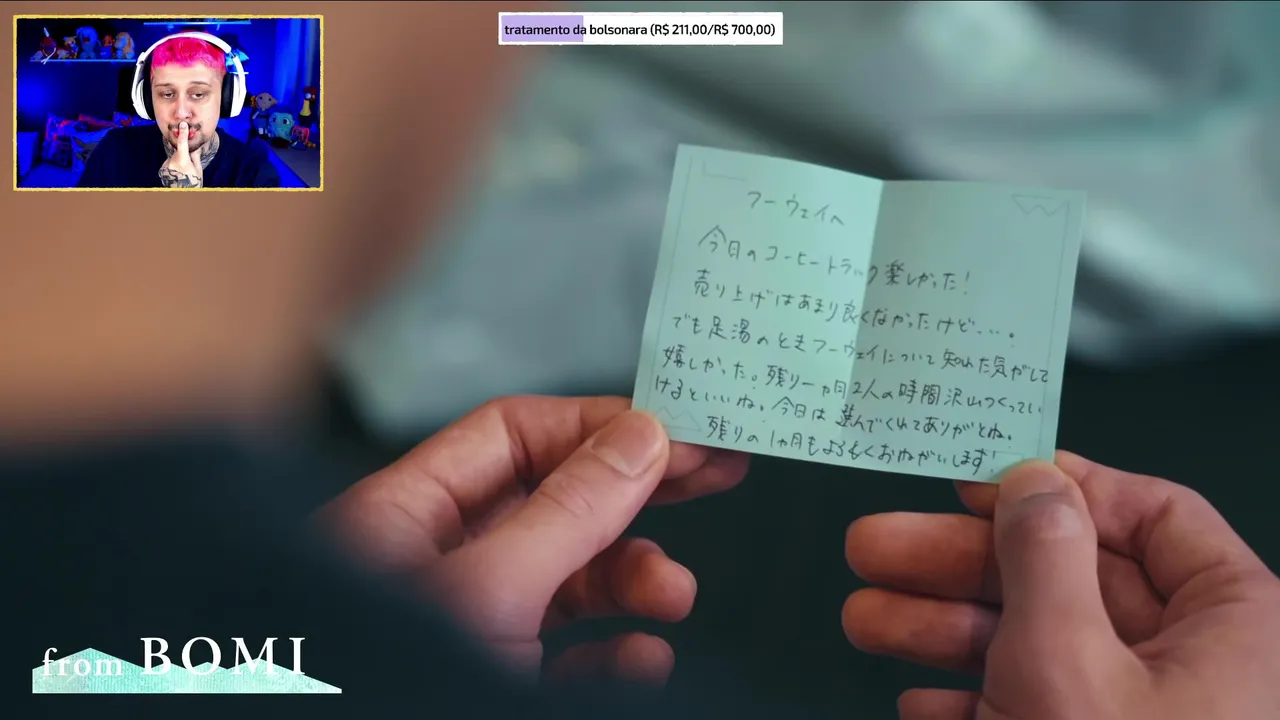 tratamento da bolsonara (R$ 211,00/R$ 700,00)
フーウェイへ
今日のコーヒートラック楽しかった!
売り上げはあまり良くなかったけど….
でも足湯のときフーウェイについて知れた気がして
嬉しかった。残り一ヵ月2人の時間沢山つくってい
けるといいね。今日は選んでくれてありがとね。
残りの1ヵ月もよろしくおねがいします!
from BOMI